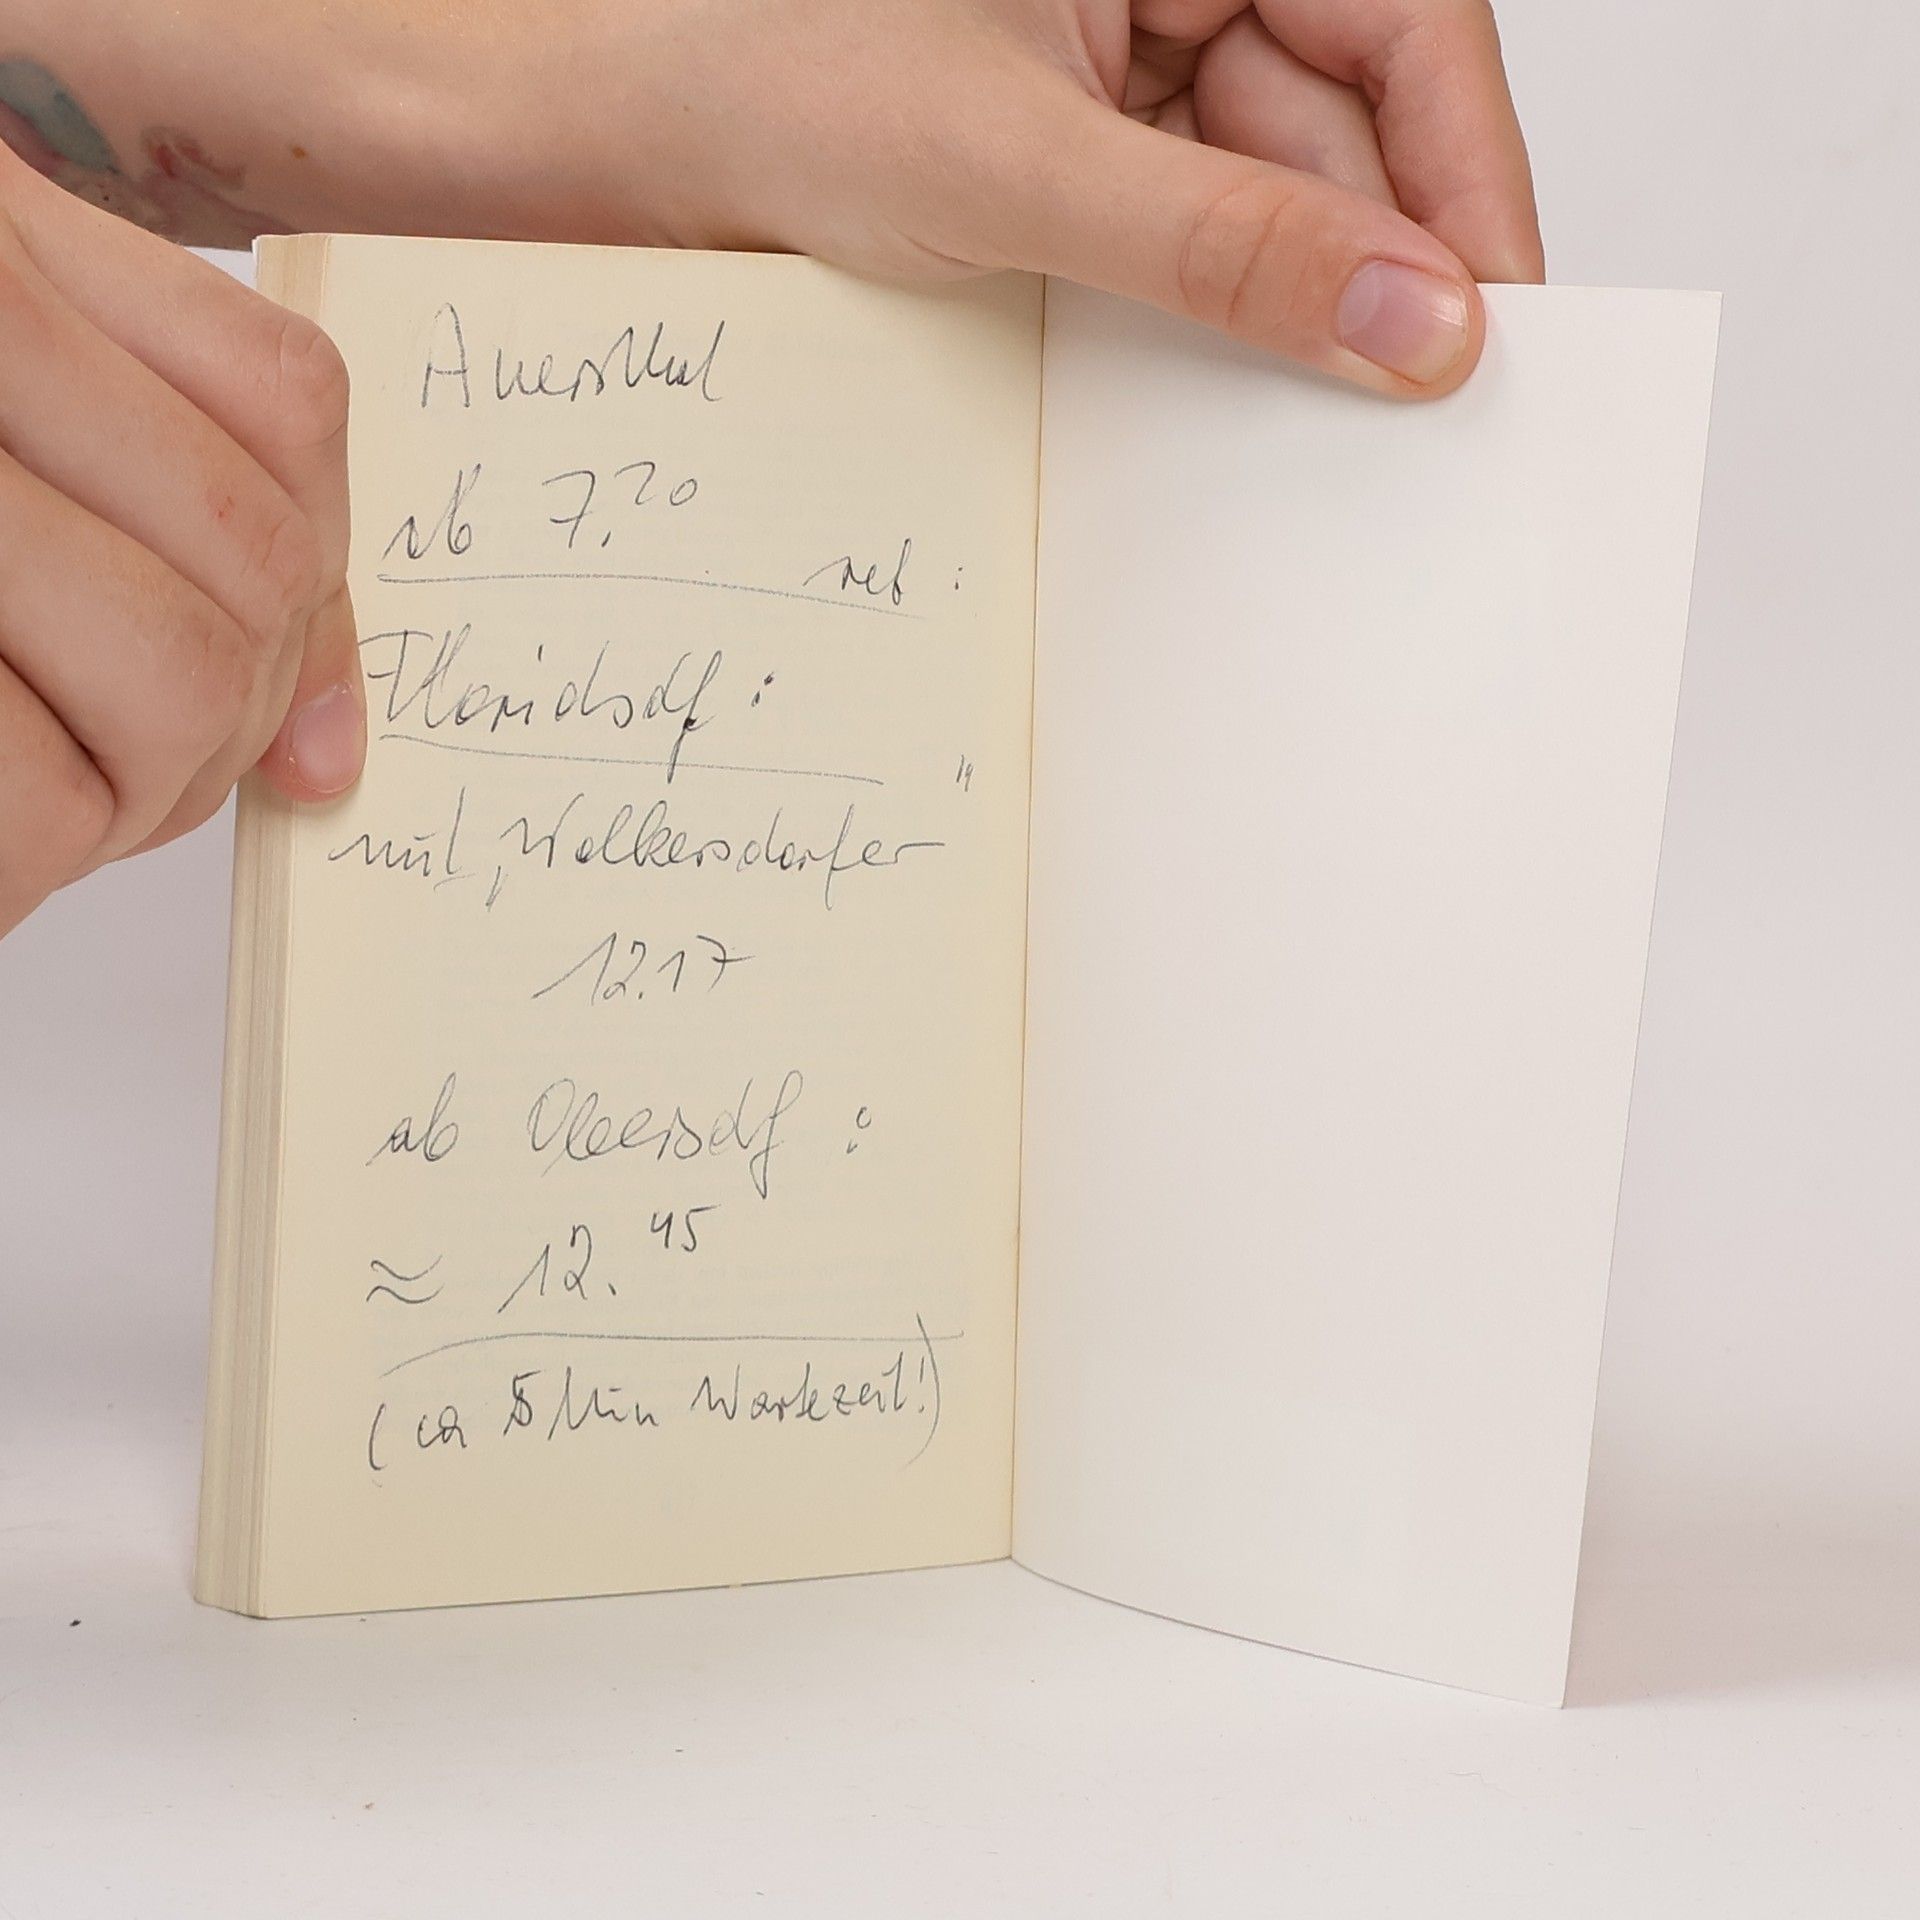 Auersthal
ab 7.20
ret :
Floridsdf :
mit „Wolkersdorfer"
12.17
ab Obersdf :
≈ 12.45
( ca 5 Min Wartezeit!)